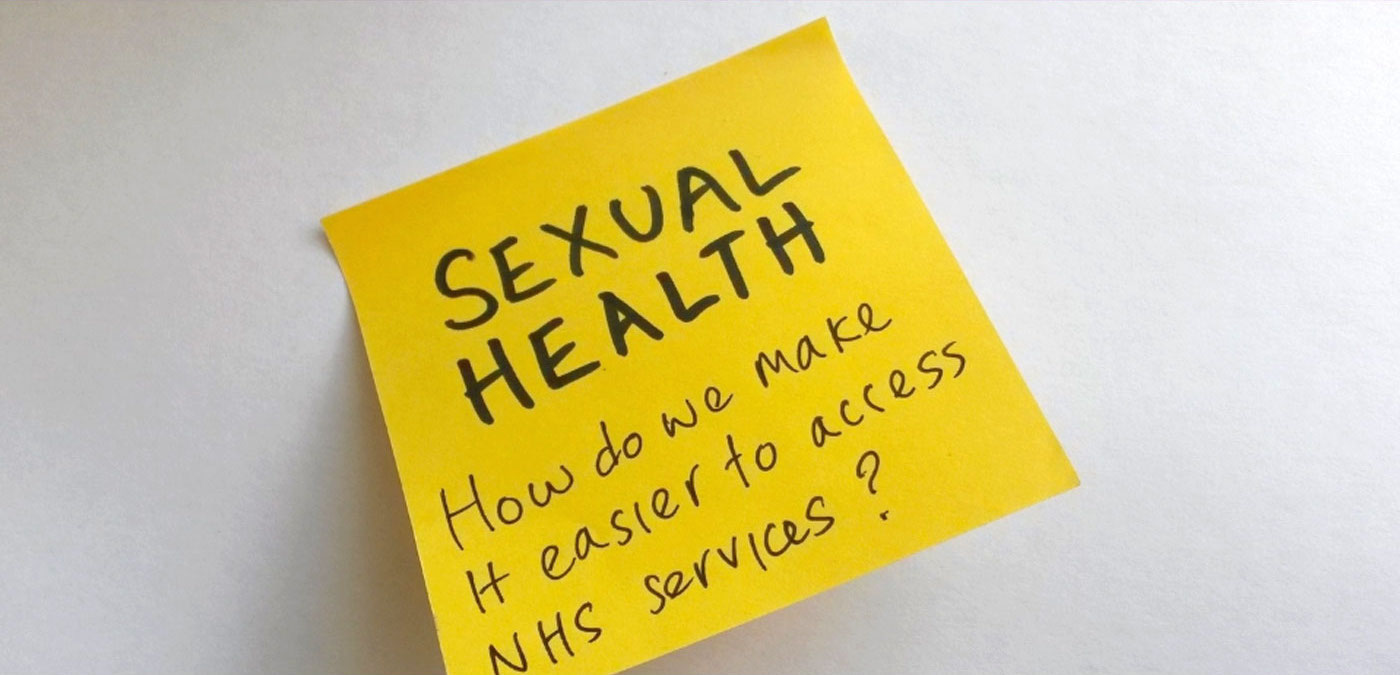 SEXUAL
HEALTH
How do we make
it easier to access
NHS services?